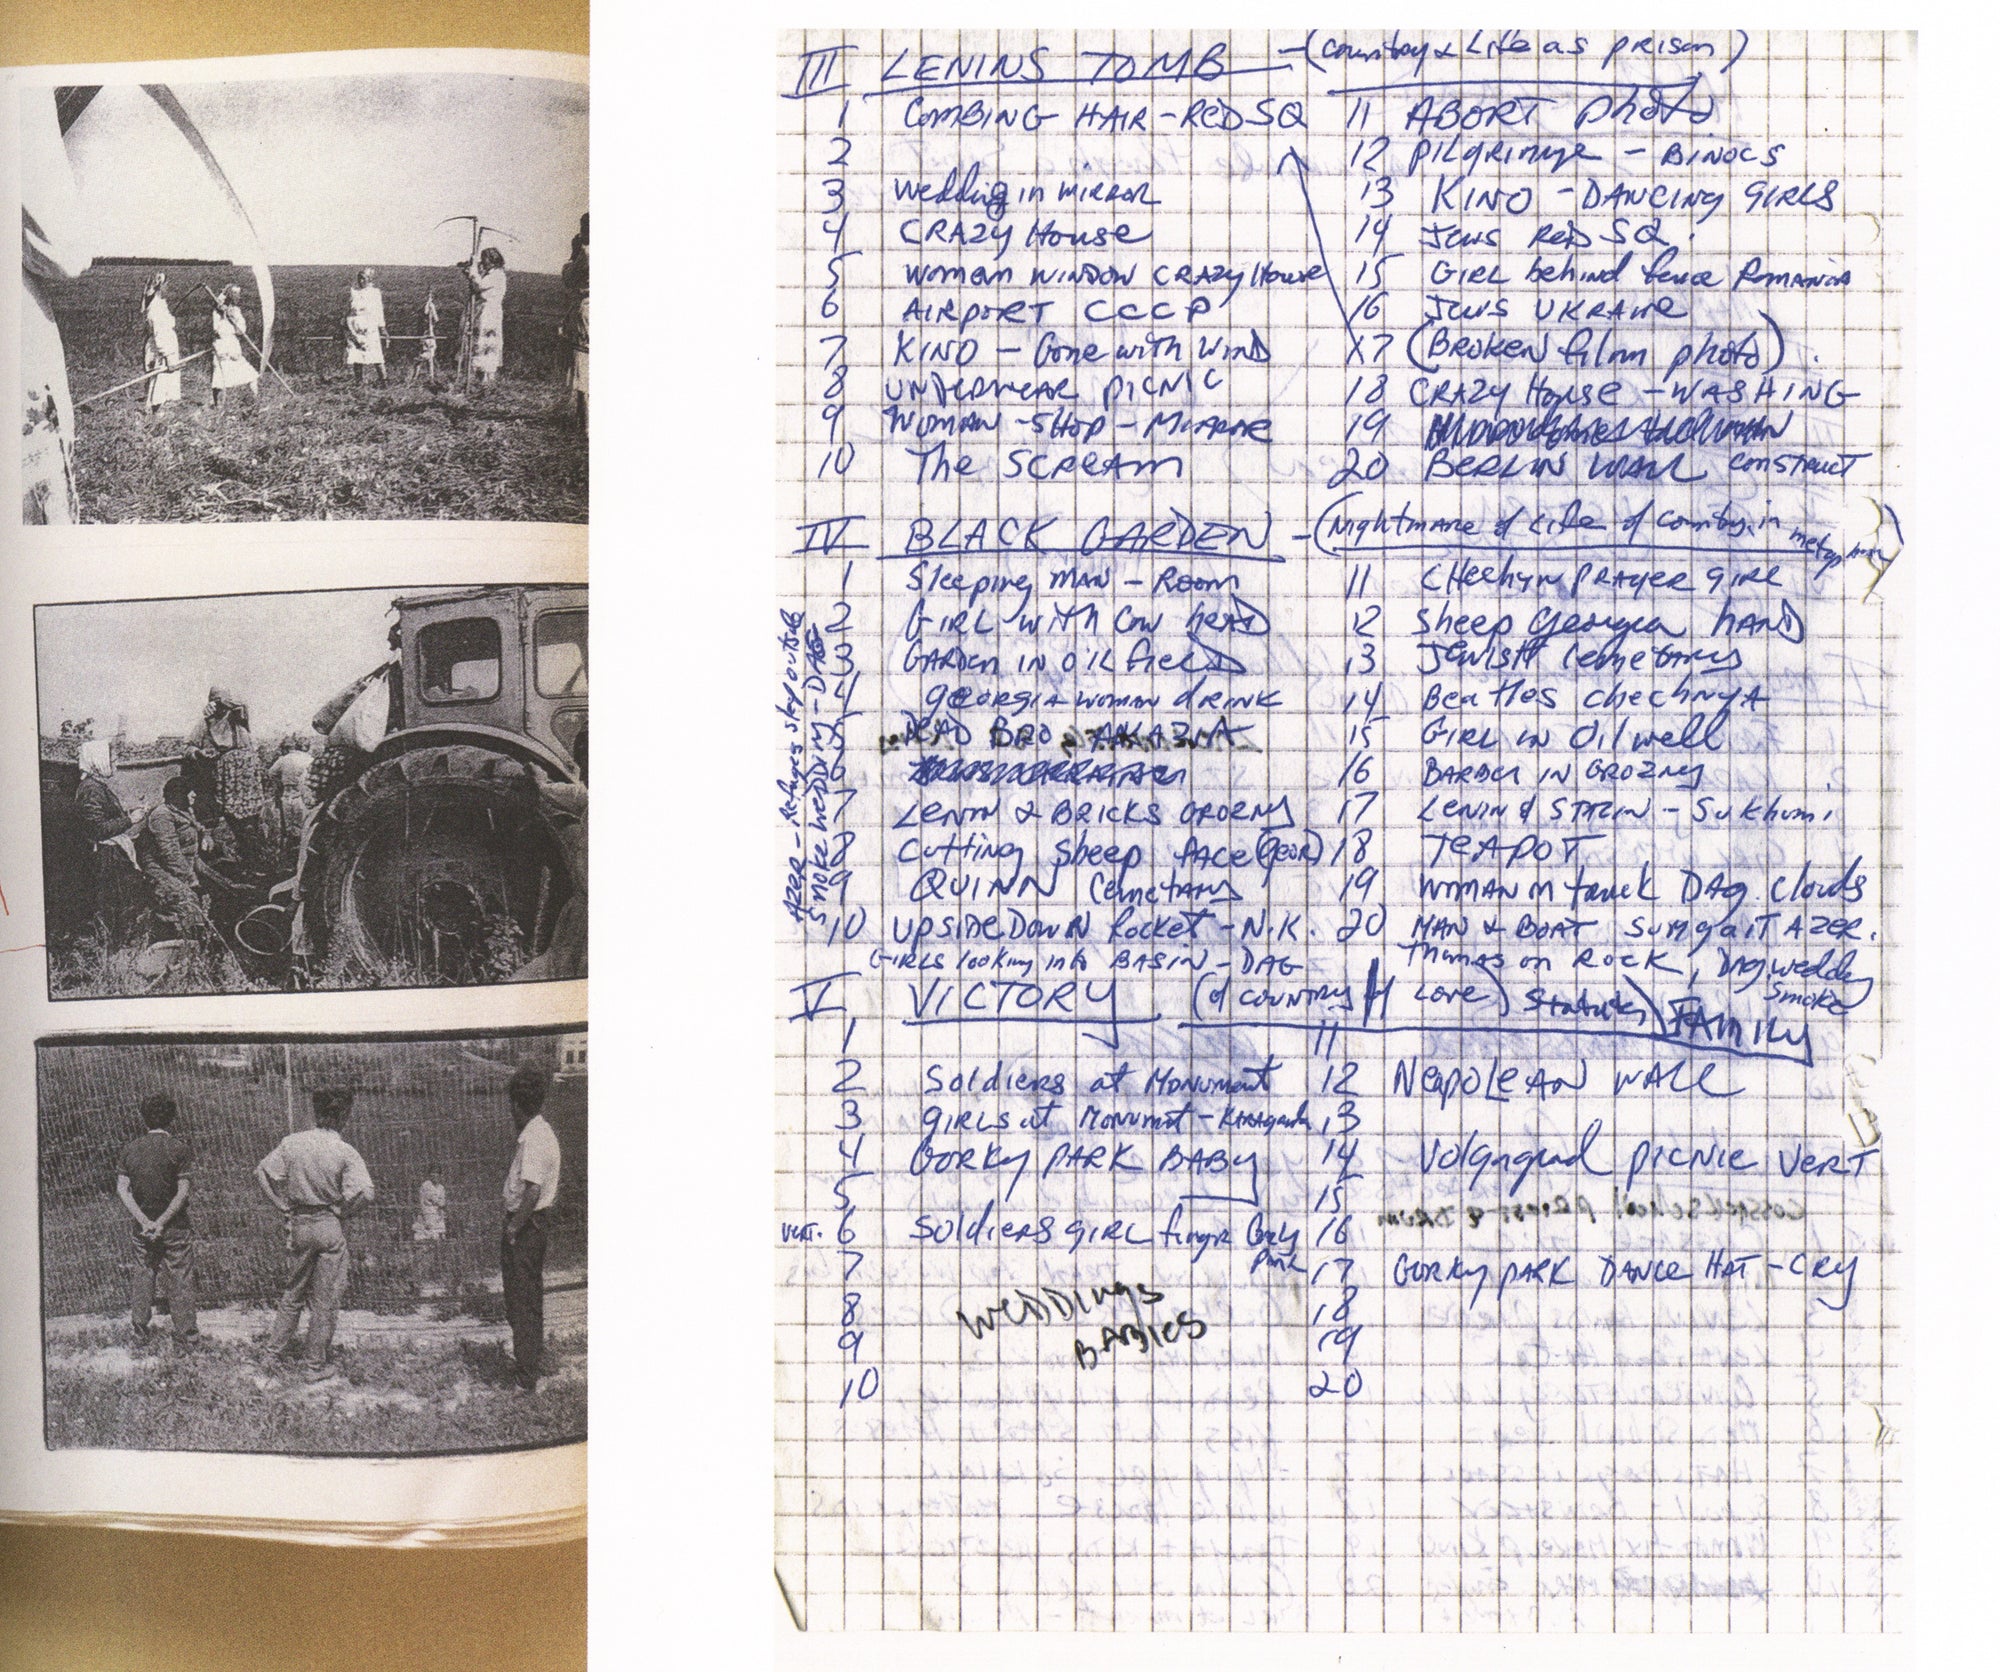 III LENINS TOMB - (Country & Life as prison)
1 COMBING HAIR - RED SQ
2
3 Wedding in mirror
4 CRAZY House
5 women window CRAZY House
6 AIRPORT CCCP
7 KINO - Gone with WIND
8 UNDERWEAR PICNIC
9 WOMAN - SHOP -
10 The SCREAM
11 ABORT photo
12 Pilgrimage - BINOCS
13 KINO - DANCING GIRLS
14 Jews RED SQ.
15 GIRL behind fence Romania
16 Jews UKRAINE
17 (BROKEN film photo).
18 CRAZY House - WASHING
19
20 BERLIN WALL CONSTRUCT
IV BLACK GARDEN - (Nightmare of Life of Country in metaphor)
1 Sleeping MAN - Room
2 GIRL with Cow heAD
3 GARDEN IN OIL fielD
4 georgia woman drink
5 DEAD BRO
6
7 Lenin & BRICKS GROZNY
8 Cutting sheep face (Geor)
9 QUINN Cemetary
10 upside Down Rocket - N.K.
GIRLS looking into BASIN - DAG
Azer - Refuges step outside
Smoke wedding - DAG
11 CHechyn prayer girl
12 Sheep georgia hAND
13 Jewish cemetary
14 Beatles chechnyA
15 GIRL IN Oil well
16 BARBER IN GROZNY
17 LENIN & STALIN - Sukhumi
18 TEAPOT
19 WOMAN in truck DAG. clouds
20 MAN & BOAT Sumgait AZER.
Thomas on ROCK, DAG wedding
smoke
V VICTORY (of COUNTRY of Love) FAMILY
1
2 Soldiers at Monument
3 girls at Monumet - Karaganda
4 GORKY PARK BABY
5
VERT. 6 Soldiers girl finger Gorky
Park
7
8
9
10
WEDDINGS
BABIES
11
12 NeapoleAN WALL
13
14 Volgagrad picnic VERT
15
16
17 GORKY PARK DANCE HAT - CRY
18
19
20